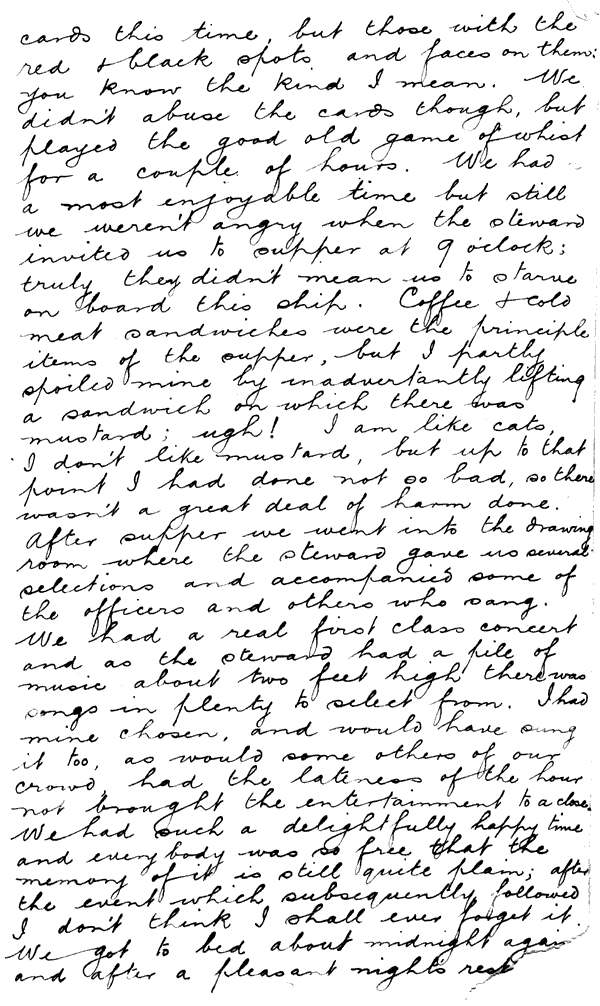 cards this time, but those with the
red & black spots and faces on them:
you know the kind I mean. We
didn't abuse the cards though, but
played the good old game of whist
for a couple of hours. We had
a most enjoyable time but still
we weren't angry when the steward
invited us to supper at 9 o'clock;
truly they didn't mean us to starve
on board this ship. Coffee & cold
meat sandwiches were the principle
items of the supper, but I partly
spoiled mine by inadvertantly lifting
a sandwich on which there was
mustard; ugh! I am like cats,
I don't like mustard, but up to that
point I had done not so bad, so there
wasn't a great deal of harm done.
After supper we went into the drawing
room where the steward gave us several
selections and accompanied some of
the officers and others who sang.
We had a real first class concert
and as the steward had a pile of
music about two feet high there was
songs in plenty to select from. I had
mine chosen, and would have sung
it too, as would some others of our
crowd, had the lateness of the hour
not brought the entertainment to a close.
We had such a delightfully happy time
and everybody was so free that the
memory of it is still quite plain; after
the event which subsequently followed
I don't think I shall ever forget it.
We got to bed about midnight again
and after a pleasant nights rest